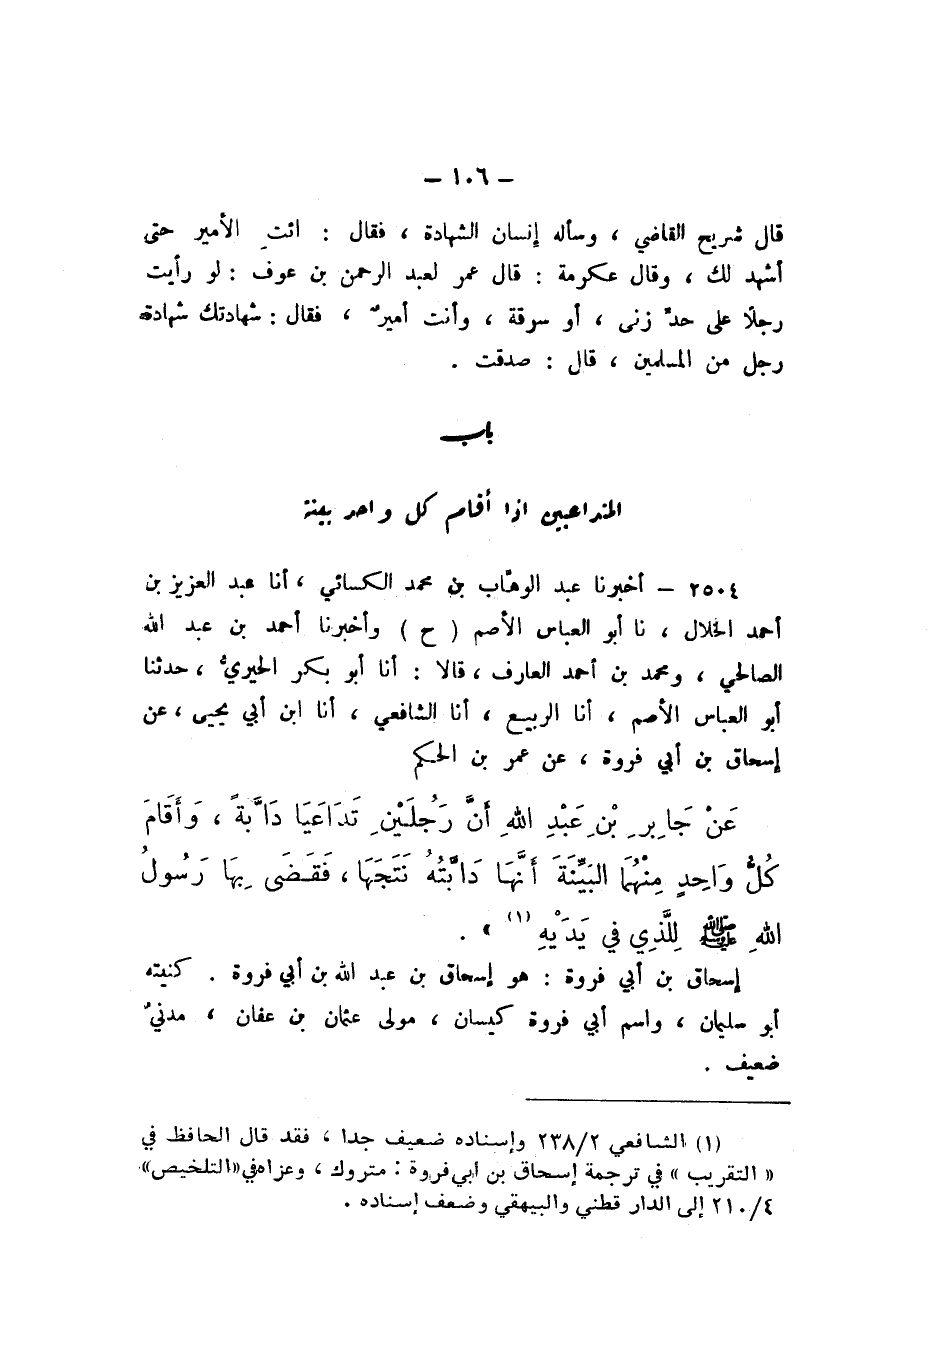 – ١٠٦ –
قال شريح القاضي ، وسأله إنسان الشهادة ، فقال : ائتِ الأمير حتى
أشهد لك ، وقال عكرمة : قال عمر لعبد الرحمن بن عوف : لو رأيت
رجلًا على حدٍّ زنى ، أو سرقة ، وأنت أميرٌ ، فقال : شهادتك شهادة
رجل من المسلمين ، قال : صدقت .
باب
المتداعيين اذا أقام كل واحد بينة
٢٥٠٤ – أخبرنا عبد الوهّاب بن محمد الكسائي ، أنا عبد العزيز بن
أحمد الخلال ، نا أبو العباس الأصم ( ح ) وأخبرنا أحمد بن عبد الله
الصالحي ، ومحمد بن أحمد العارف ، قالا : أنا أبو بكر الحيريُّ ، حدثنا
أبو العباس الأصم ، أنا الربيع ، أنا الشافعي ، أنا ابن أبي يحيى ، عن
إسحاق بن أبي فروة ، عن عمر بن الحكم
عَنْ جَابِرِ بْنِ عَبْدِ اللهِ أَنَّ رَجُلَيْنِ تَدَاعَيَا دَابَّةً ، وَأَقَامَ
كُلُّ وَاحِدٍ مِنْهُمَا البَيِّنَةَ أَنَّهَا دَابَّتُهُ نَتَجَهَا ، فَقَضَى بِهَا رَسُولُ
اللهِ ﷺ لِلَّذِي فِي يَدَيْهِ (١) » .
إسحاق بن أبي فروة : هو إسحاق بن عبد الله بن أبي فروة . كنيته
أبو سليمان ، واسم أبي فروة كيسان ، مولى عثمان بن عفان ، مدنيٌّ
ضعيف .
(١) الشافعي ٢٣٨/٢ وإسناده ضعيف جدا ، فقد قال الحافظ في
« التقريب » في ترجمة إسحاق بن أبي فروة : متروك ، وعزاه في «التلخيص»
٢١٠/٤ إلى الدار قطني والبيهقي وضعف إسناده .